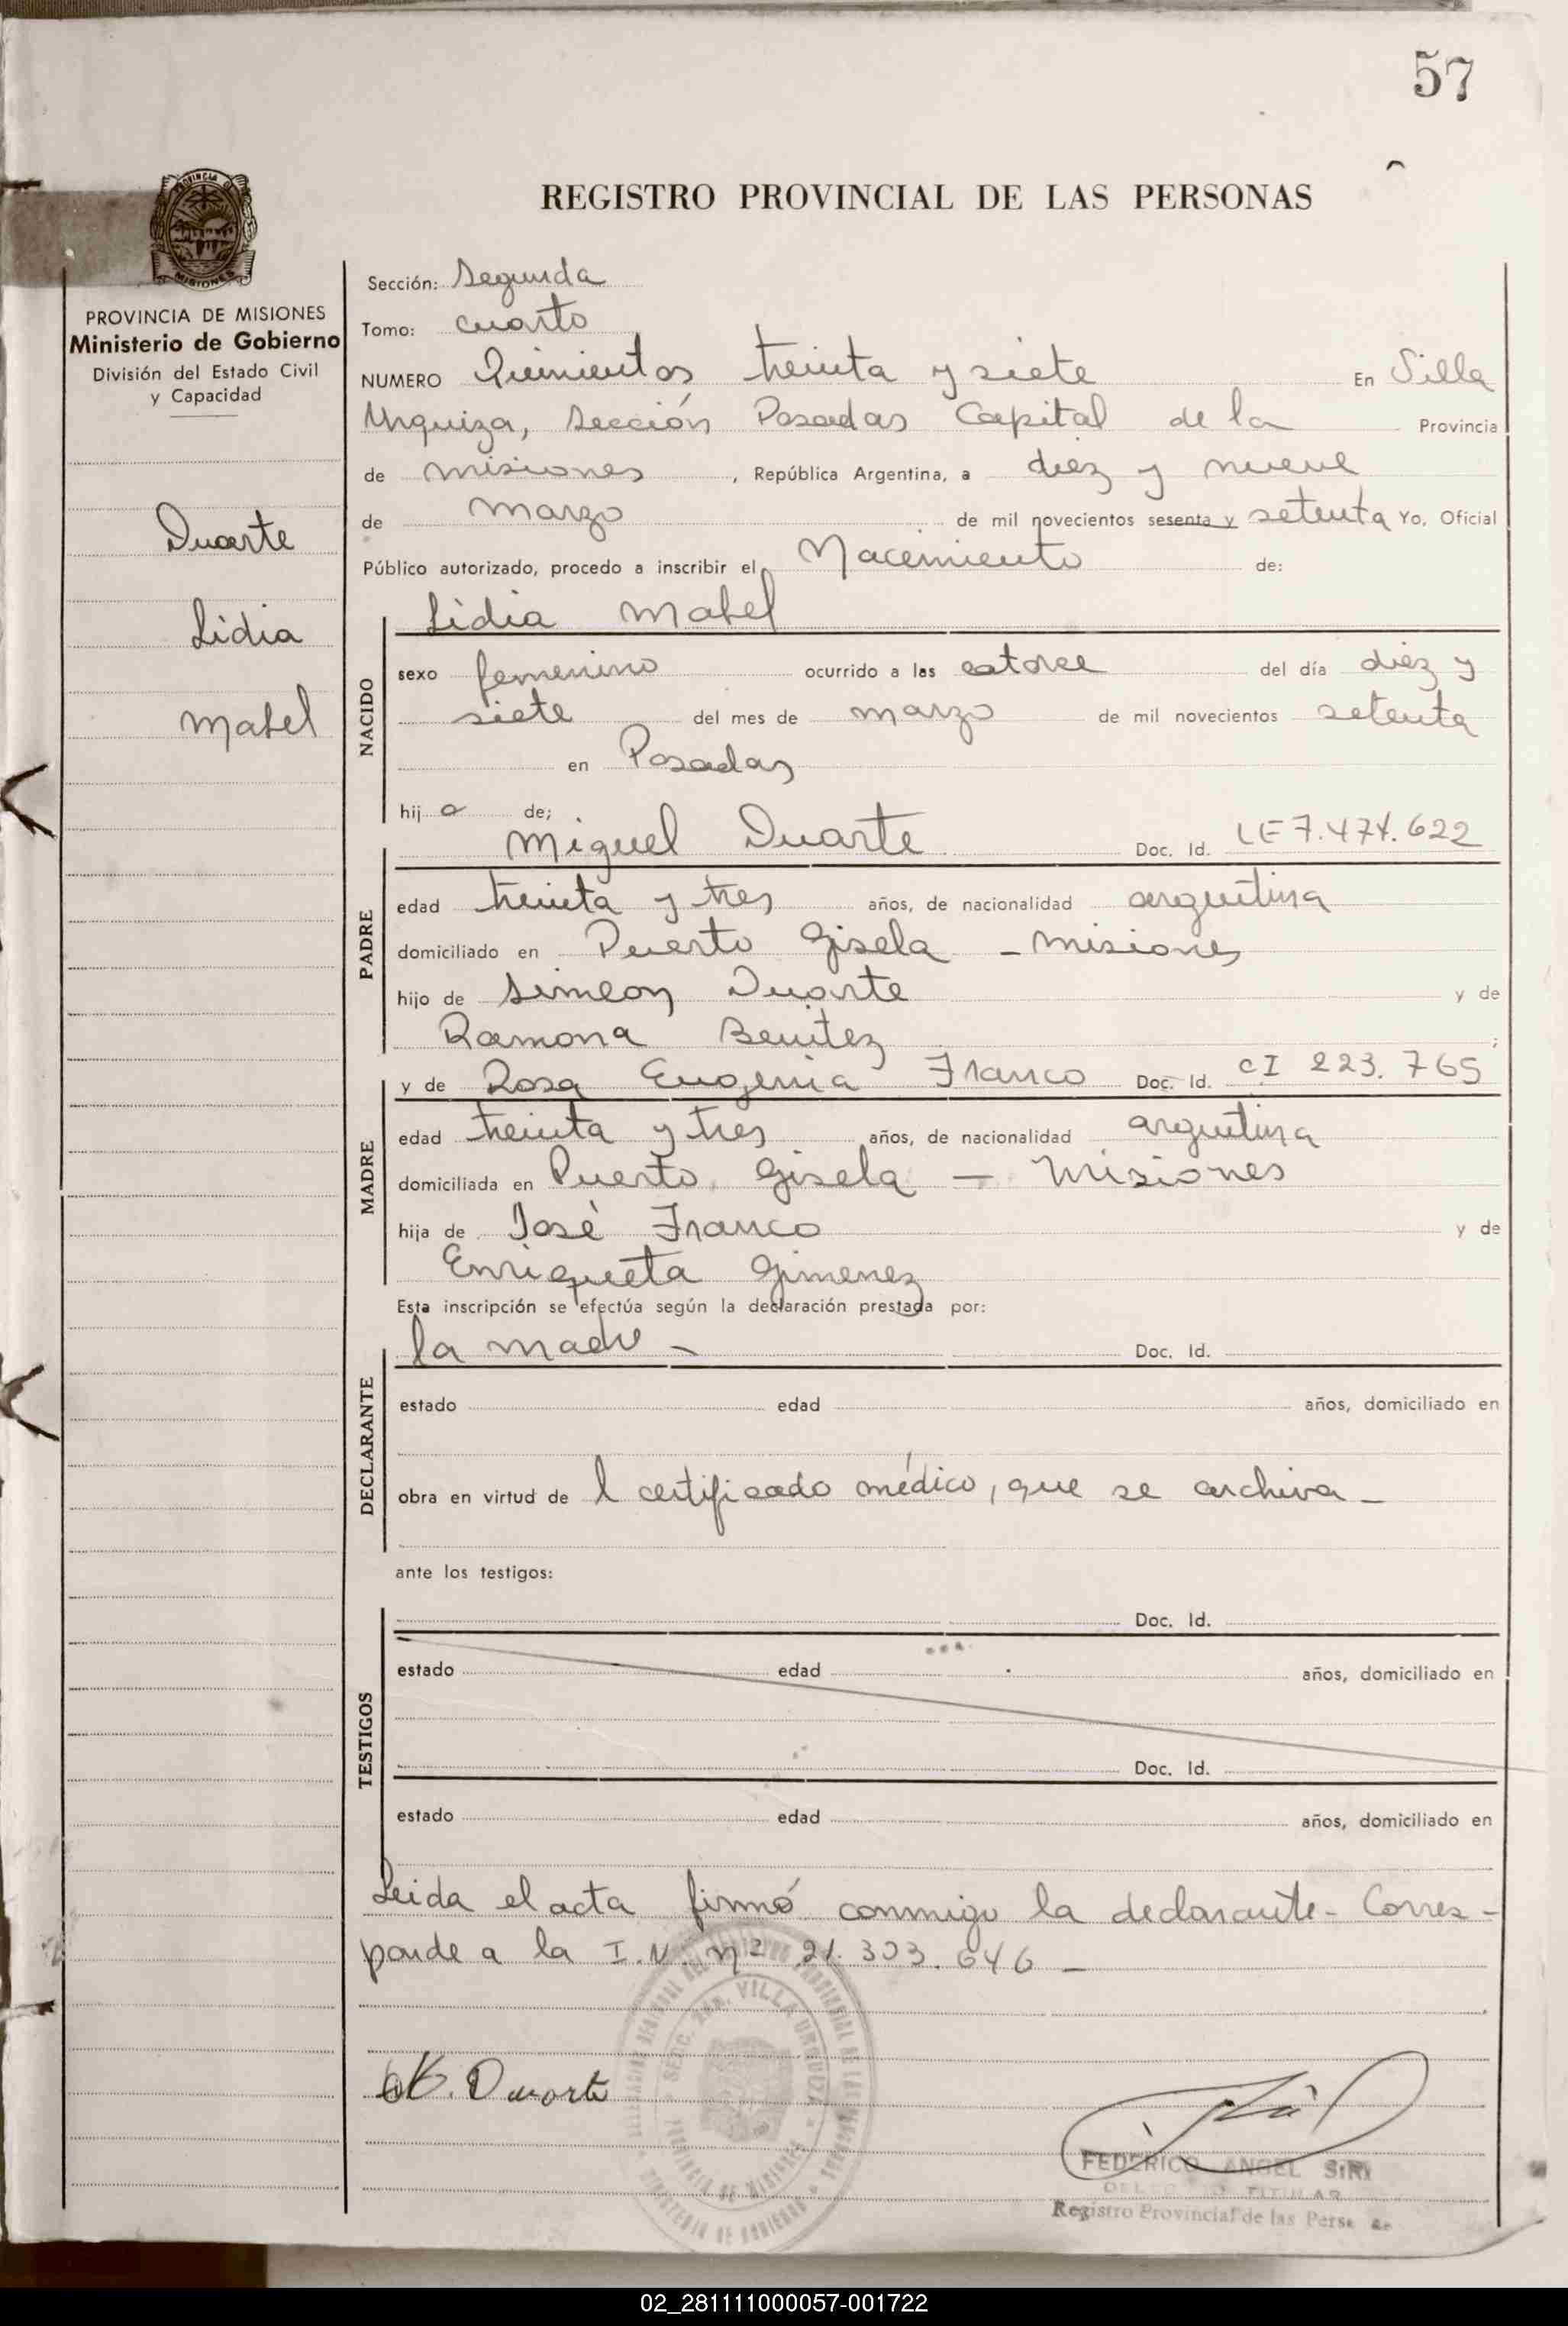 57
REGISTRO PROVINCIAL DE LAS PERSONAS
PROVINCIA DE MISIONES
Ministerio de Gobierno
División del Estado Civil
y Capacidad
Duarte
Lidia
Mabel
Sección: Segunda
Tomo: cuarto
NUMERO Quinientos treinta y siete En Villa
Urquiza, Sección Posadas Capital de la Provincia
de misiones, República Argentina, a diez y nueve
de marzo de mil novecientos sesenta y setenta Yo, Oficial
Público autorizado, procedo a inscribir el Nacimiento de:
Lidia Mabel
NACIDO
sexo femenino ocurrido a las catorce del día diez y
siete del mes de marzo de mil novecientos setenta
en Posadas
hij a de;
Miguel Duarte Doc. Id. LE 7.474.622
PADRE
edad treinta y tres años, de nacionalidad argentina
domiciliado en Puerto Gisela - misiones
hijo de Simeon Duarte y de
Ramona Benitez ;
y de Rosa Eugenia Franco Doc. Id. CI 223.765
MADRE
edad treinta y tres años, de nacionalidad argentina
domiciliada en Puerto Gisela - Misiones
hija de José Franco y de
Enriqueta Gimenez
Esta inscripción se efectúa según la declaración prestada por:
la madre - Doc. Id.
DECLARANTE
estado edad años, domiciliado en
obra en virtud de l certificado médico, que se archiva-
ante los testigos:
Doc. Id.
TESTIGOS
estado edad años, domiciliado en
Doc. Id.
estado edad años, domiciliado en
Leida el acta firmó conmigo la declarante- Corres-
ponde a la I.N. nº 21.303.646-
Duarte
SECC. 2da. VILLA URQUIZA
PROVINCIA DE MISIONES
MINISTERIO DE GOBIERNO
FEDERICO ANGEL SIRI
TITULAR
Registro Provincial de las
02_281111000057-001722